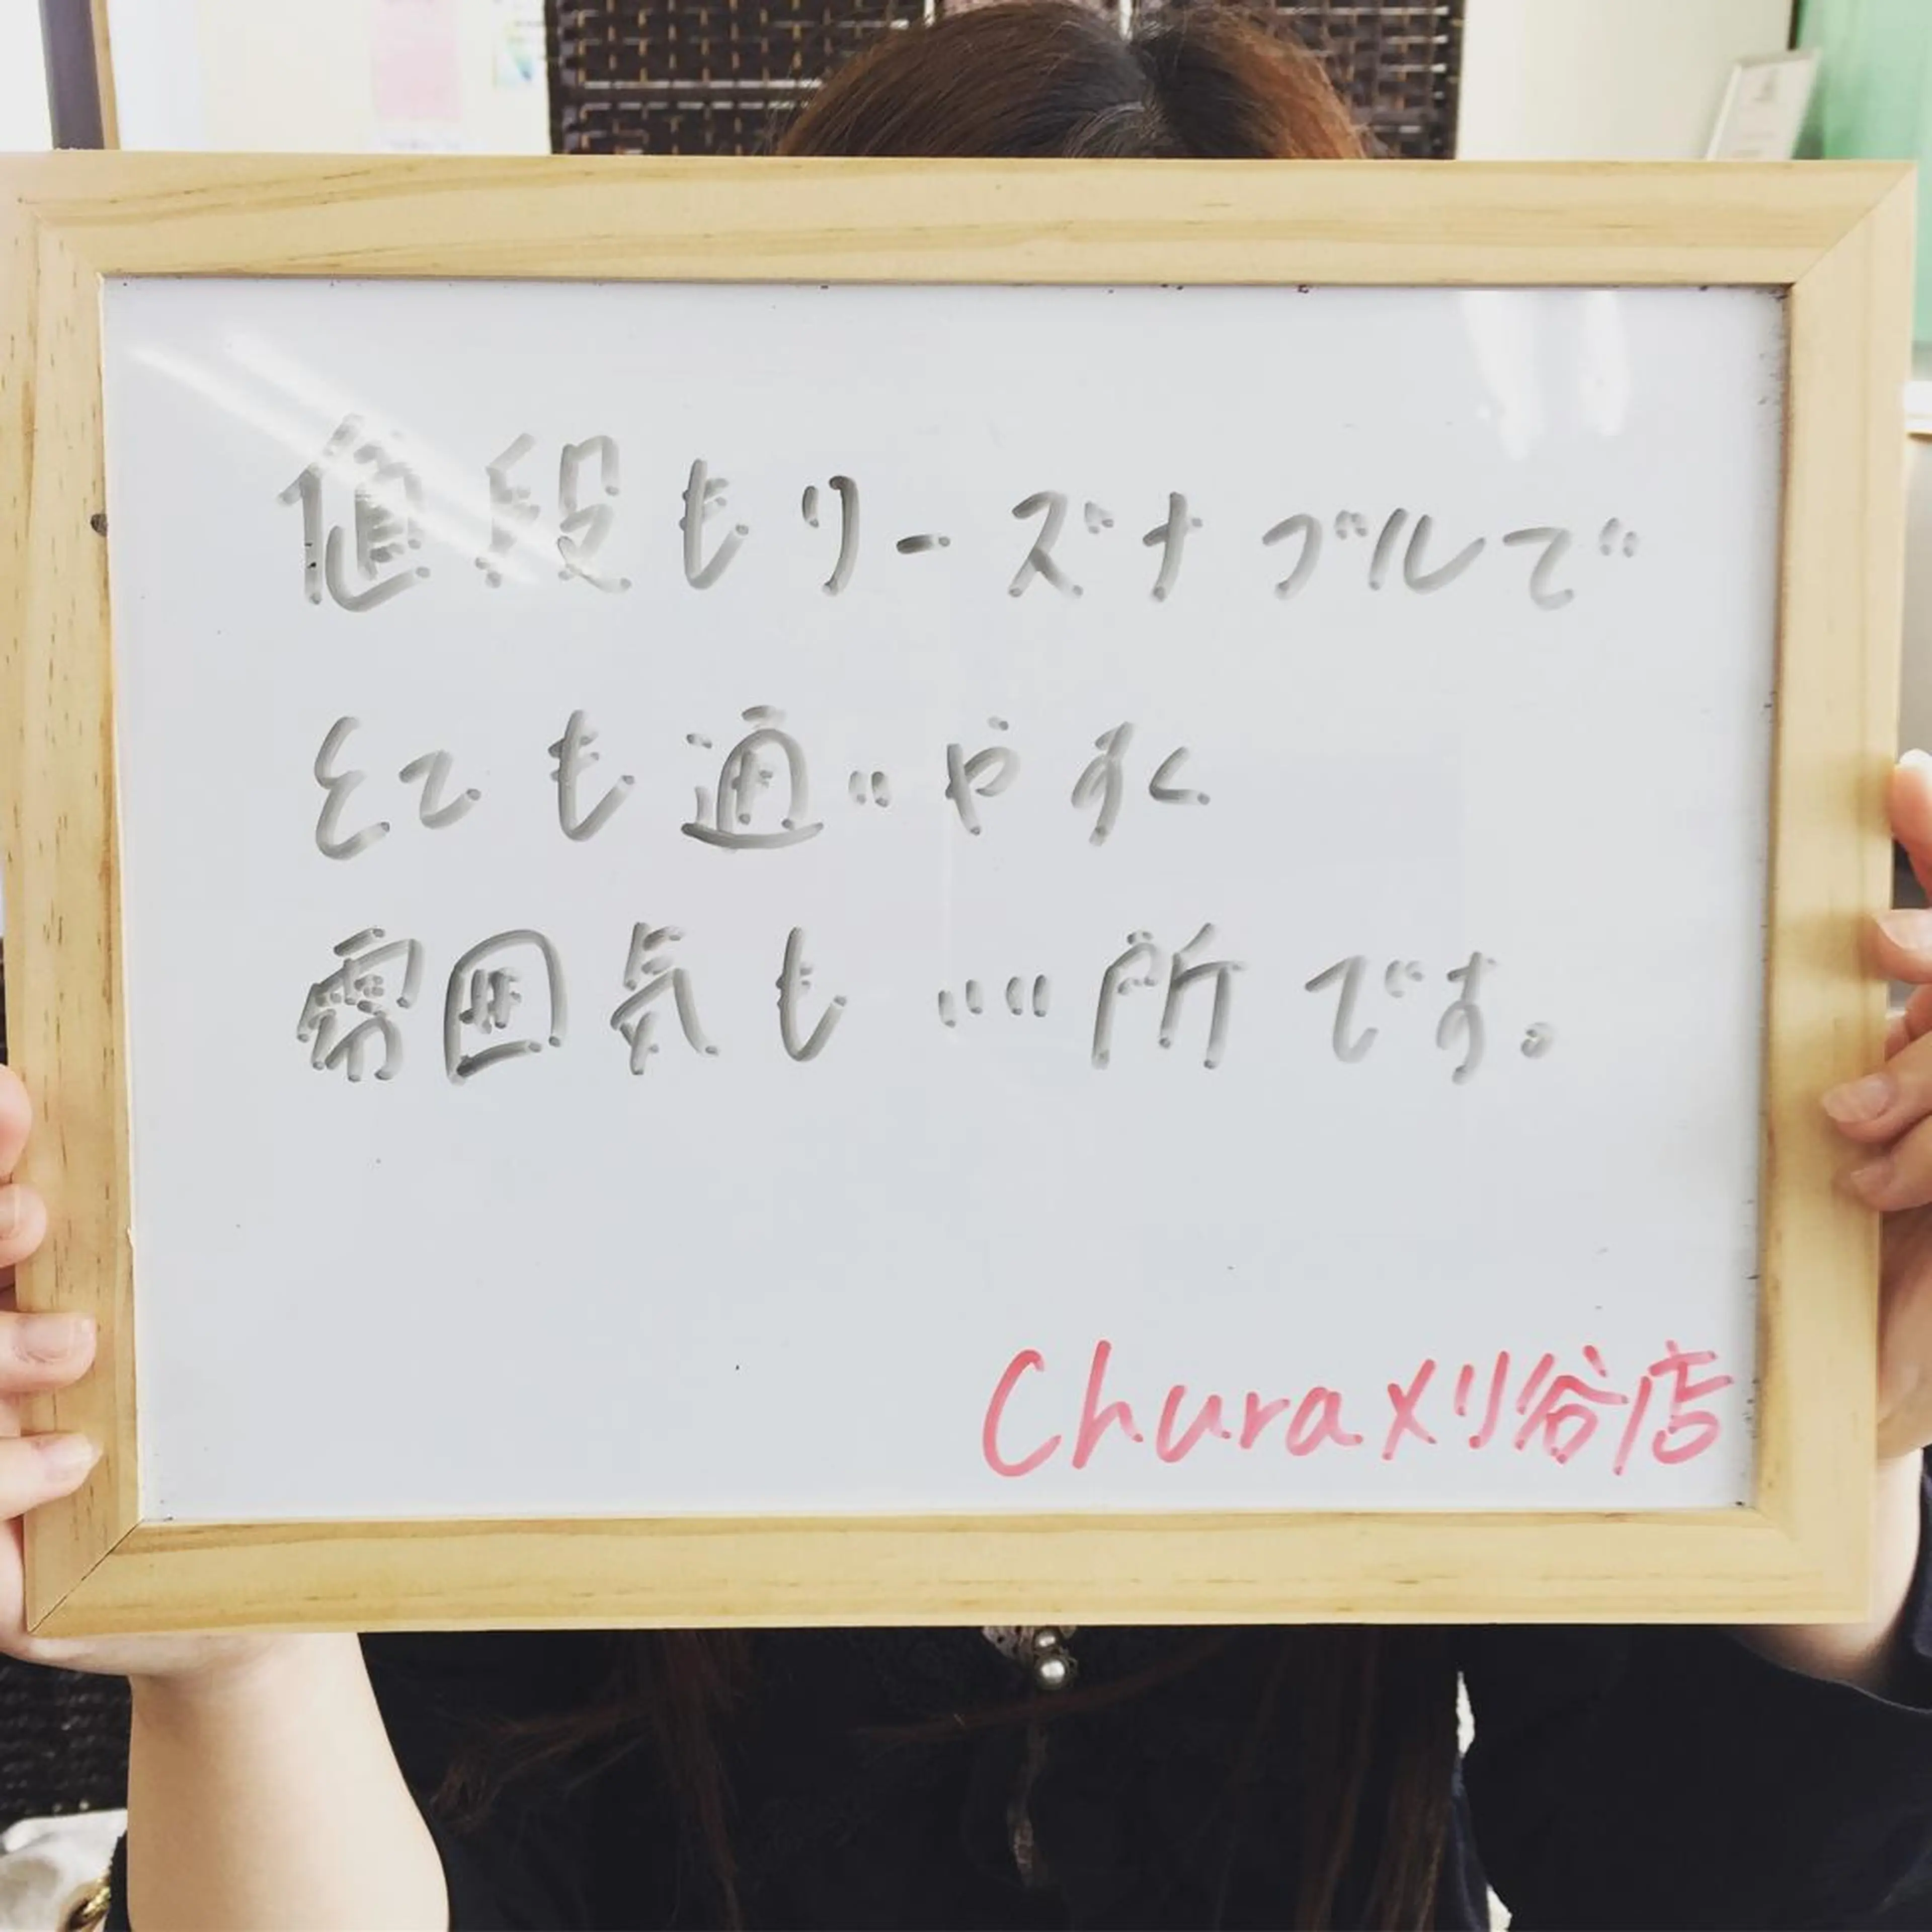 値段もリーズナブルで
とても通いやすく
雰囲気もいい所です。
Chura刈谷店